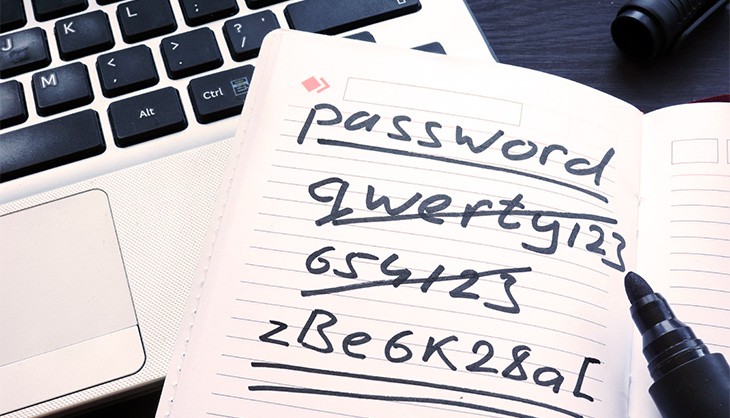 J K L
M < , > . ? /
Alt Ctrl
password
qwerty123
654123
zBe6K28a[